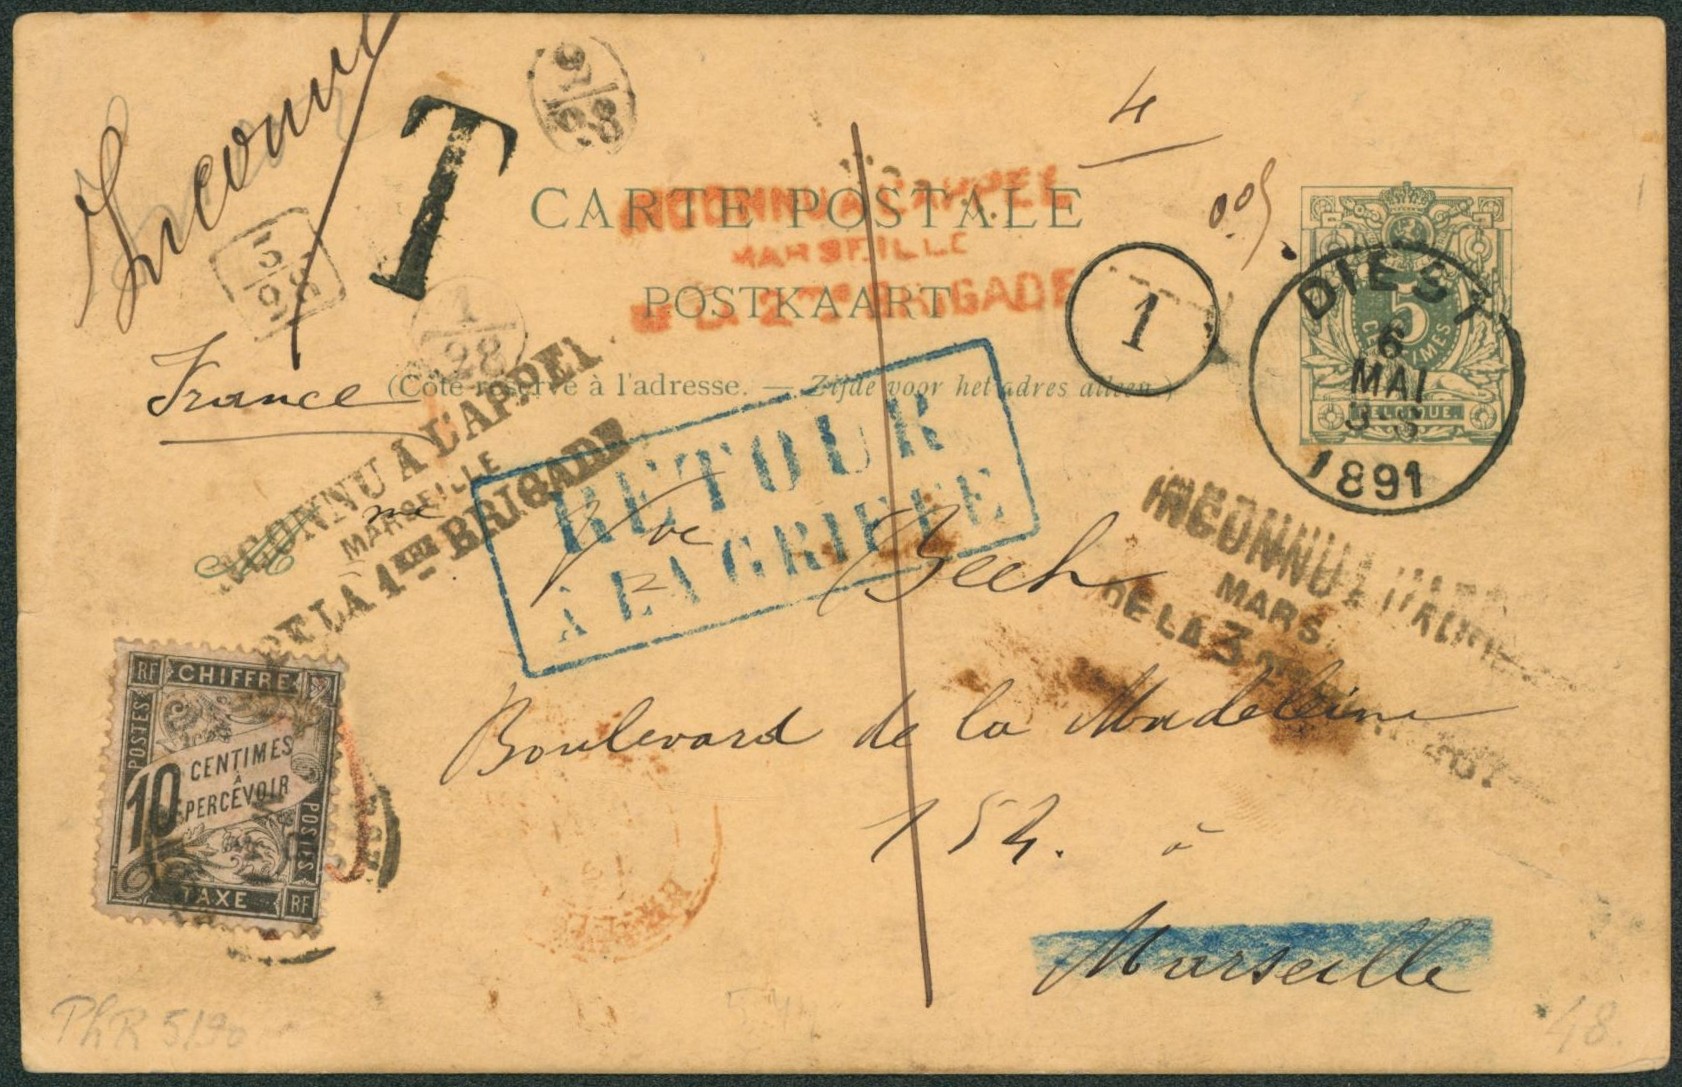 Inconnu
T
9/28
4
CARTE POSTALE
INCONNU A L'APPEL
MARSEILLE
DE LA 2me BRIGADE
POSTKAART
1
5
CENTIMES
BELGIQUE.
DIEST
6
MAI
1891
1/28
France
(Côté réservé à l'adresse. — Zijde voor het adres alleen.)
INCONNU A L'APPEL
MARSEILLE
DE LA 1ere BRIGADE
RETOUR
À LA GRIFFE
me Vve Bech
INCONNU A L'APPEL
MARS
DE LA 3
Boulevard de la Madeleine
154. à
Marseille
RF CHIFFRE
POSTES
10 CENTIMES
À
PERCEVOIR
POSTES
TAXE RF
PhR 5/90
48.